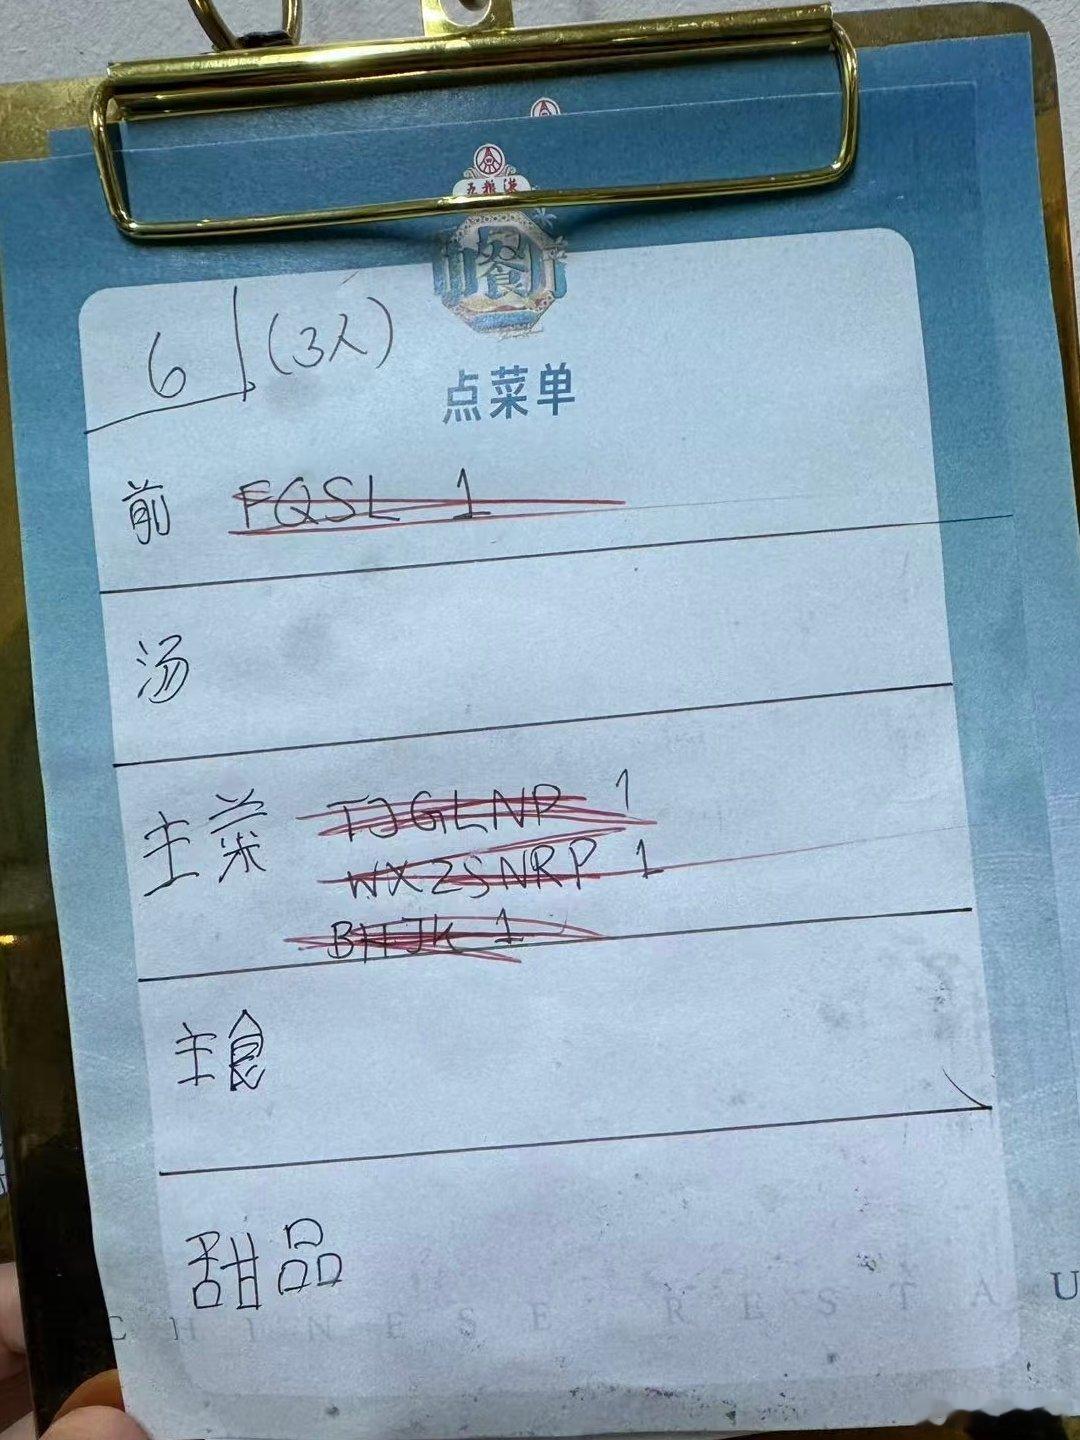 五粮液
6 (3人)
点菜单
前 FQSL 1
汤
主菜 TJGLNP 1
WXZSNRP 1
BHTJK 1
主食
甜品
CHINESE RESTAU